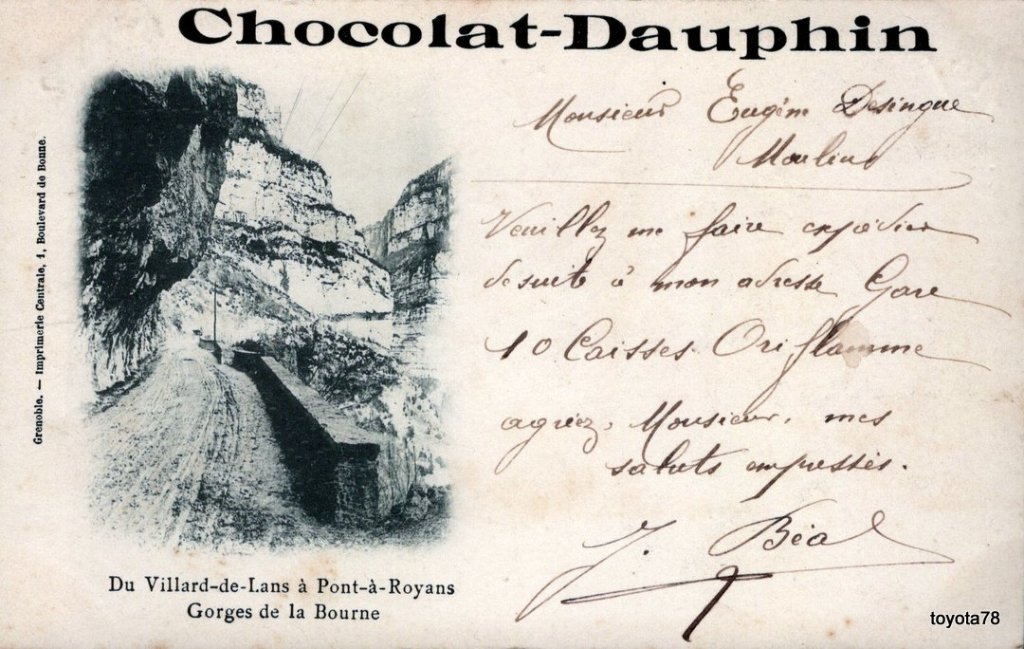 Chocolat-Dauphin
Monsieur Eugène Desingue
Moulins
Veuillez me faire expédier
de suite à mon adresse Gare
10 Caisses Oriflamme
agréez, Monsieur, mes
saluts empressés.
J. Béal
Grenoble. — Imprimerie Centrale, 1, Boulevard de Bonne.
Du Villard-de-Lans à Pont-à-Royans
Gorges de la Bourne
toyota78